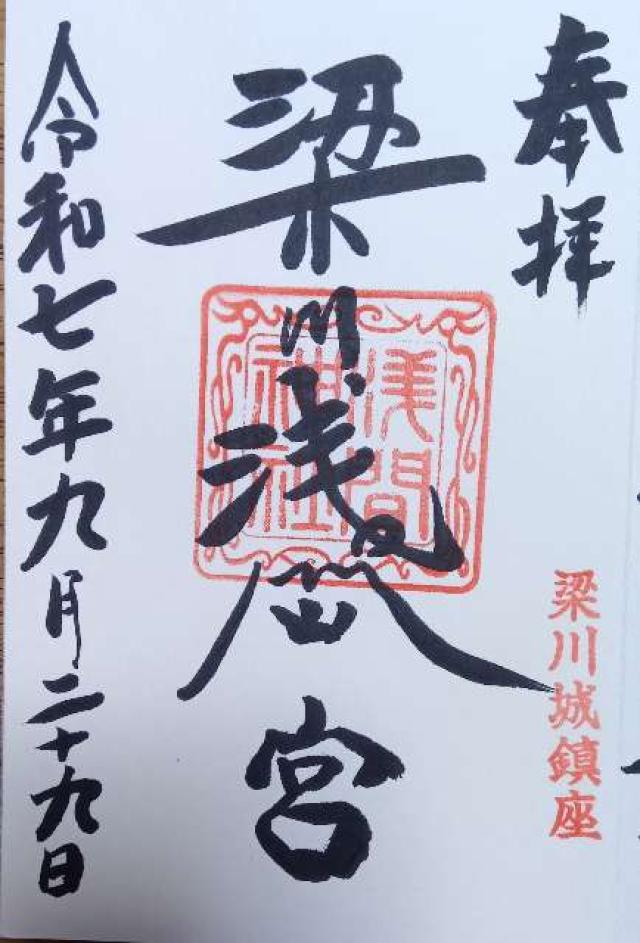 奉拝
梁川城鎮座
梁川浅宮
浅間
神社
令和七年九月二十九日